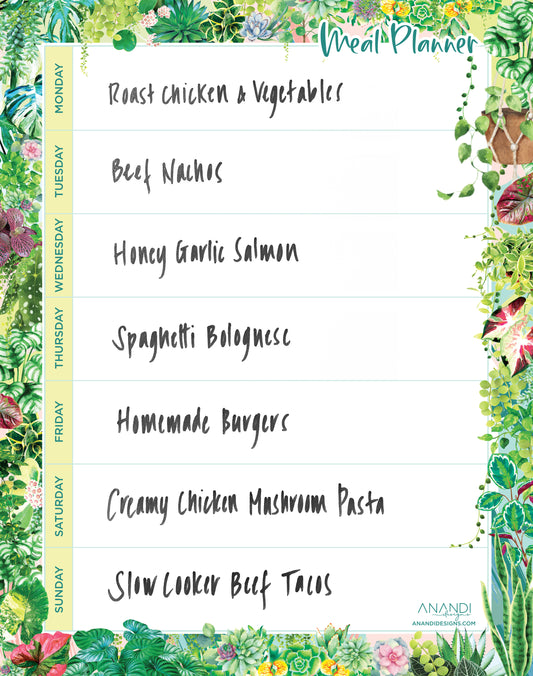 Meal Planner
MONDAY
Roast Chicken & Vegetables
TUESDAY
Beef Nachos
WEDNESDAY
Honey Garlic Salmon
THURSDAY
Spaghetti Bolognese
FRIDAY
Homemade Burgers
SATURDAY
Creamy Chicken Mushroom Pasta
SUNDAY
Slow Cooker Beef Tacos
ANANDI
designs
ANANDIDESIGNS.COM